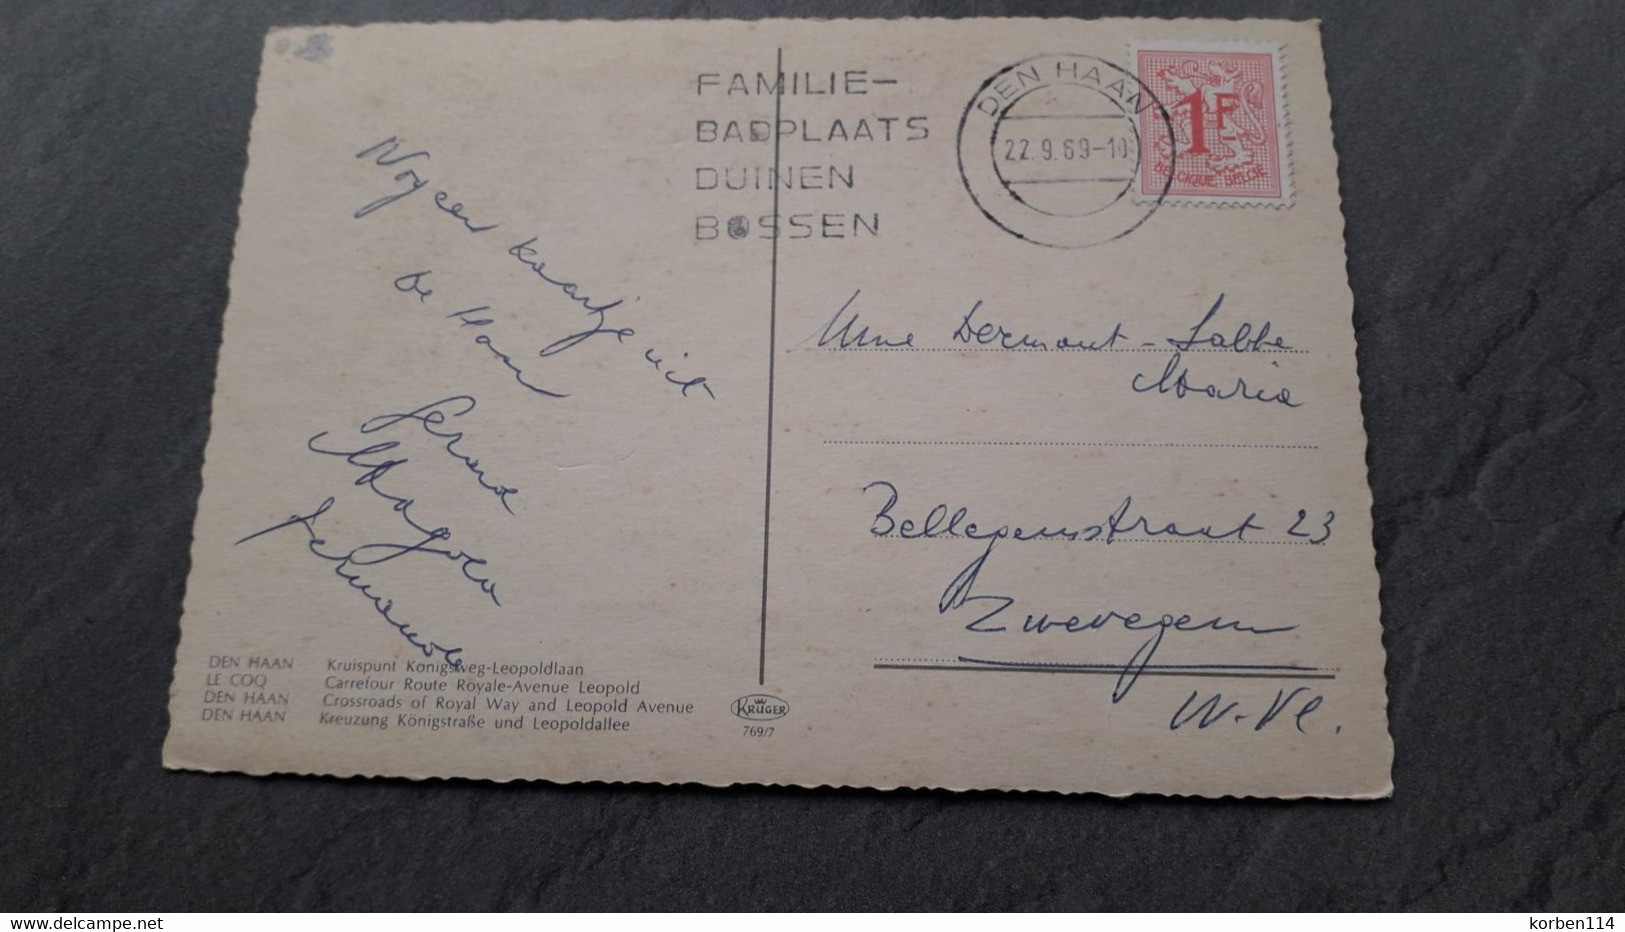 FAMILIE-
BADPLAATS
DUINEN
BOSSEN
DEN HAAN
22.9.69-10
1F
BELGIQUE BELGIE
Nog een kaartje uit
De Haan
Gerard
Magda
Fernande
Mme Dermaut - Labbe
Maria
Bellegemstraat 23
Zwevegem
W-Vl.
DEN HAAN Kruispunt Konigsweg-Leopoldlaan
LE COQ Carrefour Route Royale-Avenue Leopold
DEN HAAN Crossroads of Royal Way and Leopold Avenue
DEN HAAN Kreuzung Königstraße und Leopoldallee
KRÜGER
769/7
www.delcampe.net
korben114